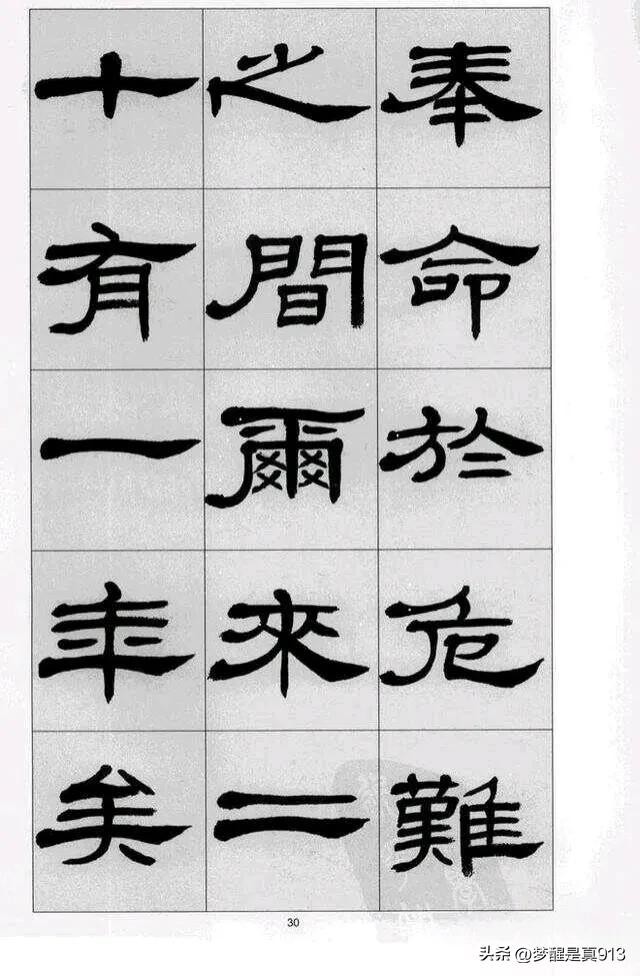 奉命於危難
之間爾來二
十有一年矣
30
头条 @梦醒是真913